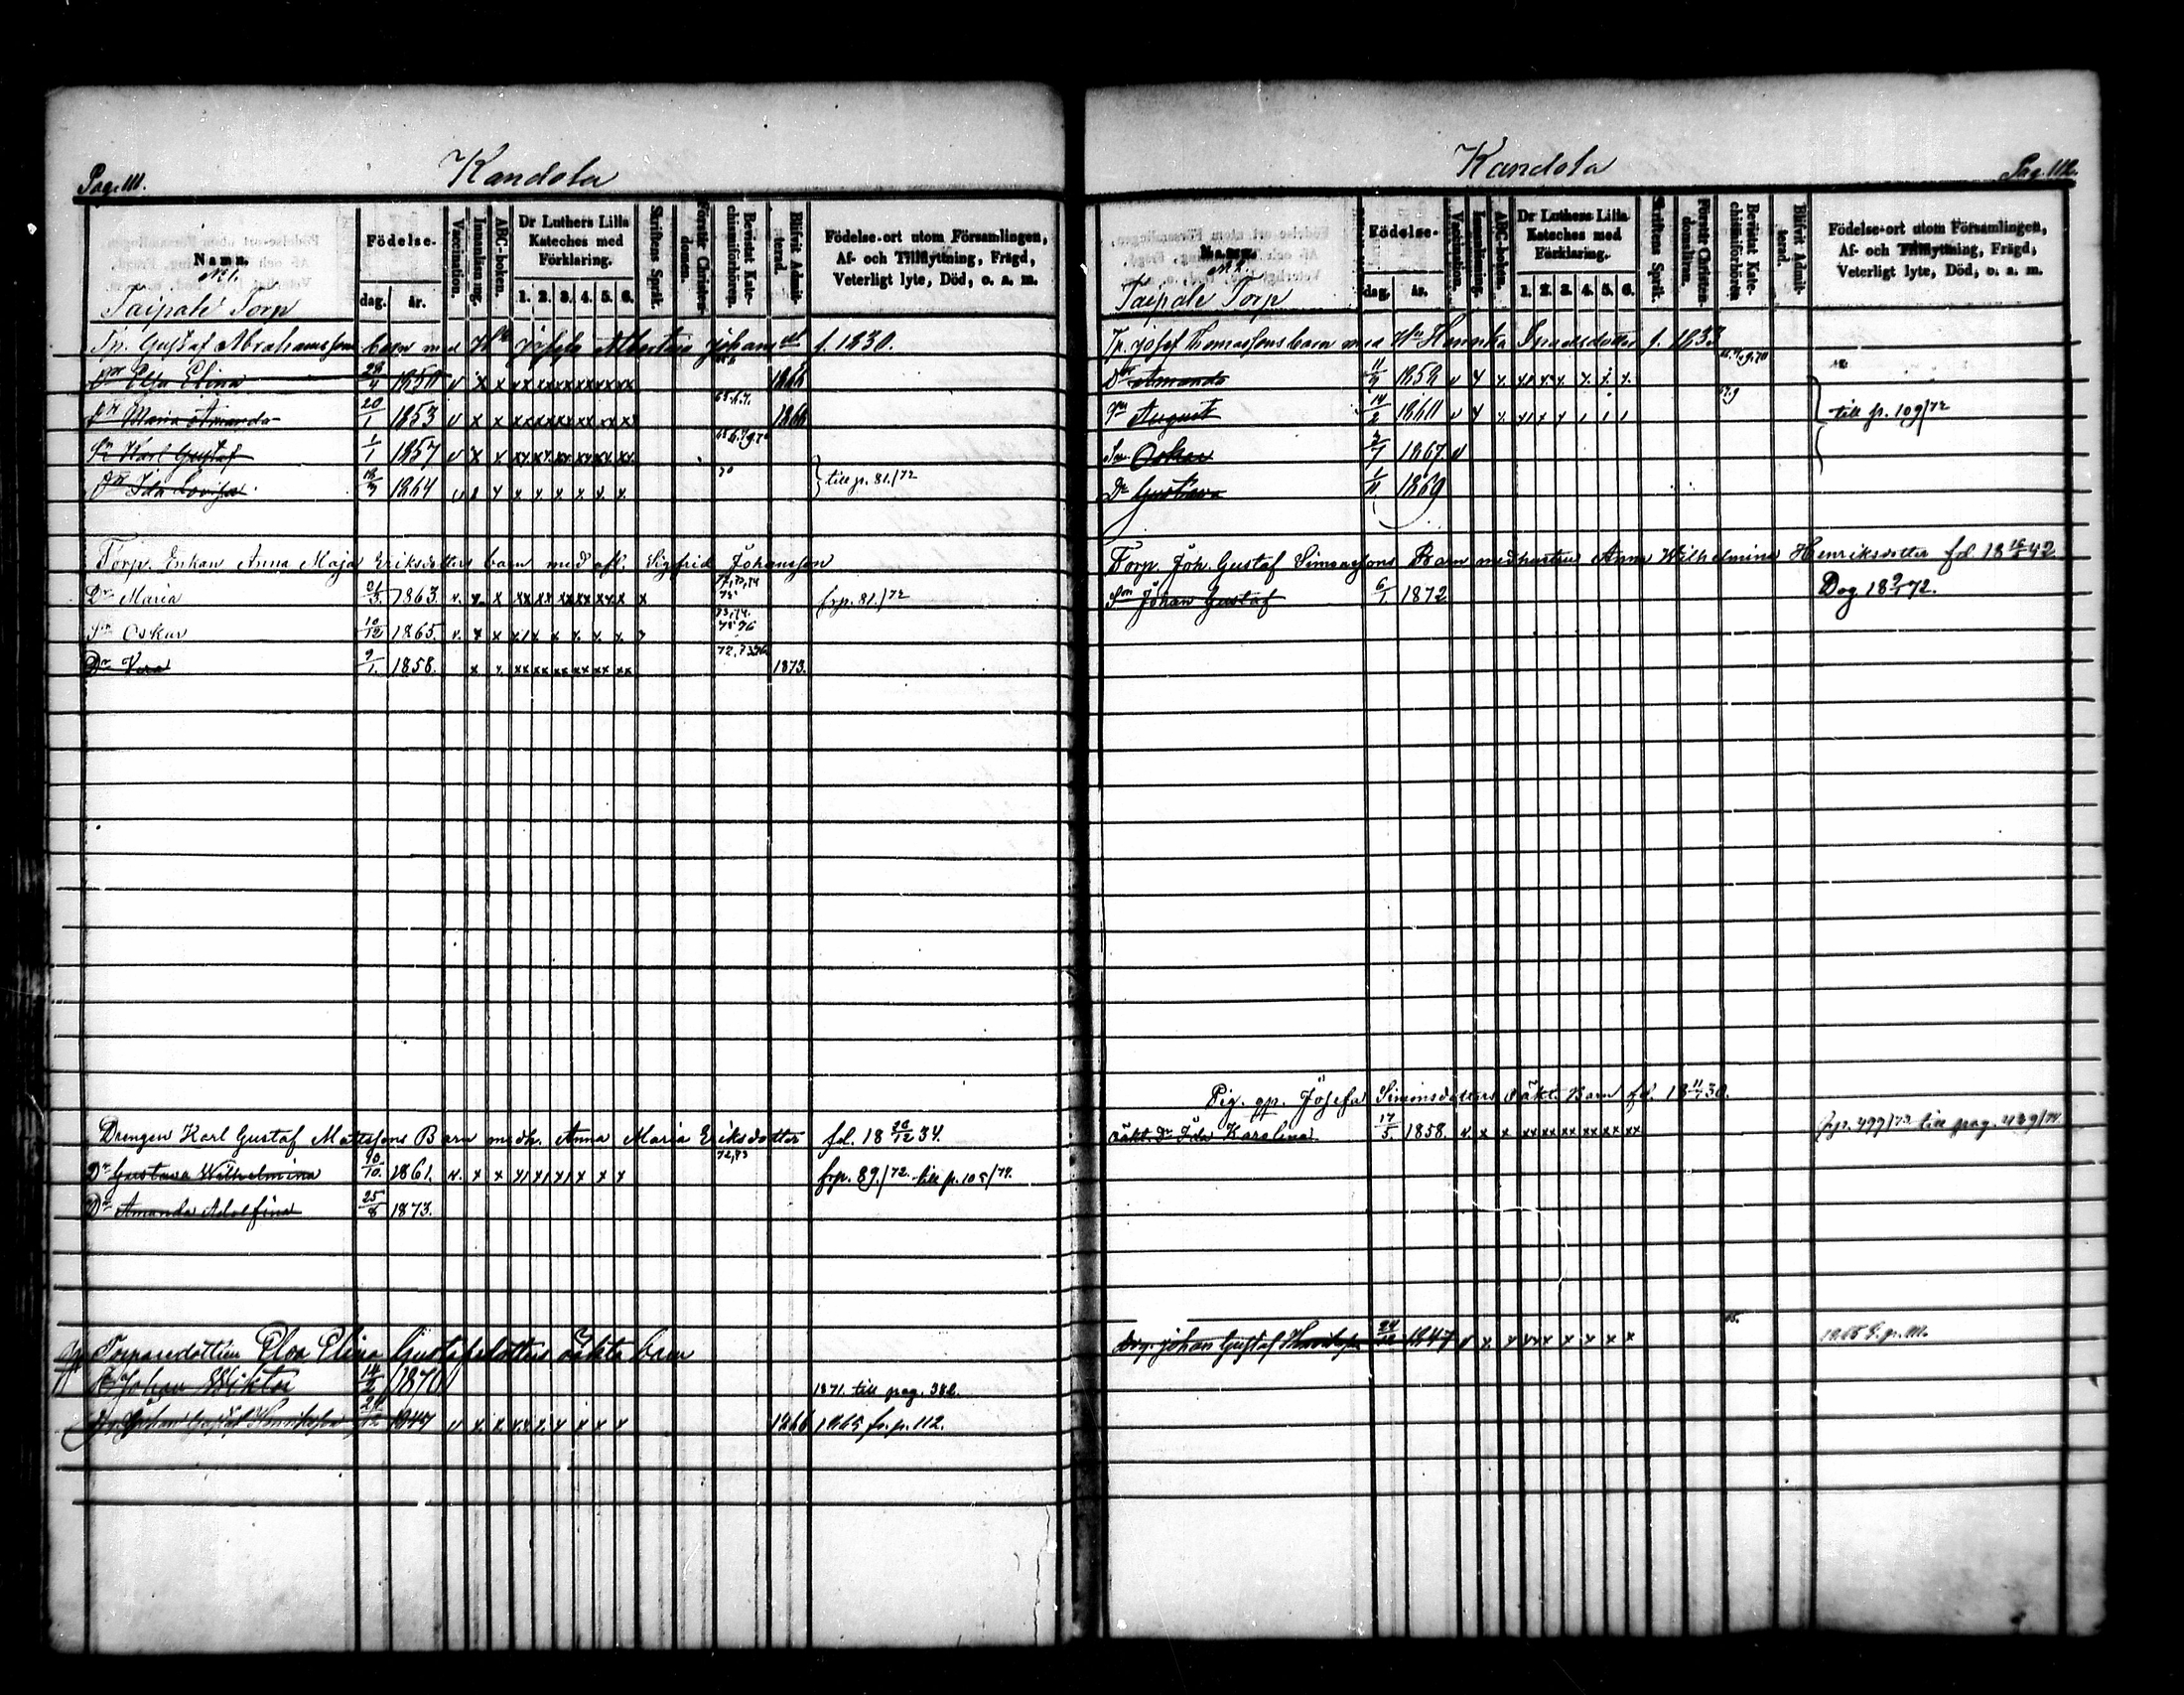 Pag. 111.
Kandola
Namn.
Födelse.
dag.
år.
Vaccination.
Innanläsning.
ABC-boken.
Dr Luthers Lilla Kateches med Förklaring.
1. 2. 3. 4. 5. 6.
Skriftens Språk.
Förstår Christendomen.
Bevistat Katechismiförhören.
Blifvit Admitterad.
Födelse-ort utom Församlingen, Af- och Tillflyttning, Frägd, Veterligt lyte, Död, o. a. m.
No 1.
Taipale Torp
Tp. Gustaf Abrahamsson barn med Albertina Johansdr f. 1830.
Dr Elsa Elina 23/4 1850 v x x xx xx xx xx xx xx 1866
Dr Maria Amanda 20/1 1853 v x x xx xx xx xx xx xx 65.6.7. 1866
Sn Karl Gustaf 1/1 1857 v x x
Dr Ida Lovisa 1864 x x x x x x 70 till p. 81./72
Torp. Enkan Anna Maja Eriksdotters barn med afl. Sigfrid Johansson
Dr Maria 1863. v. x x xx xx xx xx xx x x 75 frp. 81./72
Sn Oskar 10/12 1865. v. x x 73, 74. 75 76
Dr Vera 9/1. 1858. x x. xx xx xx xx xx xx 1873.
Drengen Karl Gustaf Mattssons Barn medh. Anna Maria Eriksdotter fd. 18 26/12 34.
Dr Gustava Wilhelmina 1861. v. x x 72, 73 frp. 89./72. till p. 105/74.
Dr Amanda Adolfina 25/8 1873.
Torparedottren Elsa Elina Gustafsdotters oäkta barn
Johan Wiktor 14/2 1870 1871. till pag. 382.
Johan Gustaf Henriksson 1847 v x. x. 1866 1865 fr. p. 112.
Pag. 112.
Kandola
Namn.
Födelse.
dag.
år.
Vaccination.
Innanläsning.
ABC-boken.
Dr Luthers Lilla Kateches med Förklaring.
1. 2. 3. 4. 5. 6.
Skriftens Språk.
Förstår Christendomen.
Bevistat Katechismiförhören
Blifvit Admitterad.
Födelse-ort utom Församlingen, Af- och Tillflyttning, Frägd, Veterligt lyte, Död, o. a. m.
No 2.
Taipale Torp
Tp. Josef Thomassons barn med Hu Hennika f. 1833
Dr Amanda 1858 v x x.
Sn August 14/2 1860 v x x till p. 109/72
Sn Oskar 1867. v
Dr Gustava 1/11 1869
Torp. Joh. Gustaf Simonssons Barn medhustru Anna Wilhelmina Henriksdotter fd. 18 42
Son Johan Gustaf 6/1. 1872 Dog 18 9/1 72.
Pig. gp. Josefa Simonsdotters oäkt. Barn fd. 18 30.
oäkt. Dr Ida Karolina 17/5 1858. v. x x xx xx xx xx xx xx frp. 499/73 till pag. 439/74
Drg. Johan Gustaf Henriksson 24/12 1847 v x. x x x x x 65. 1865 t. p. 111.